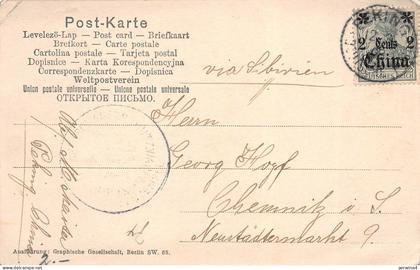 Post-Karte
Levelező-Lap — Post card — Briefkaart
Brefkort — Carte postale
Cartolina postale — Tarjeta postal
Dopisnice — Karta Korespondencyjna
Correspondenzkarte — Dopisnica
Weltpostverein
Union postale universelle — Unione postale universale
ОТКРЫТОЕ ПИСЬМО.
via Sibirien
KING
2 Cents 2
China
DEUTSCHES REICH
Herrn
Georg Hopf
Chemnitz i. S.
Neustädtermarkt 9.
Peking China
2.-
Ausführung: Graphische Gesellschaft, Berlin SW. 68.